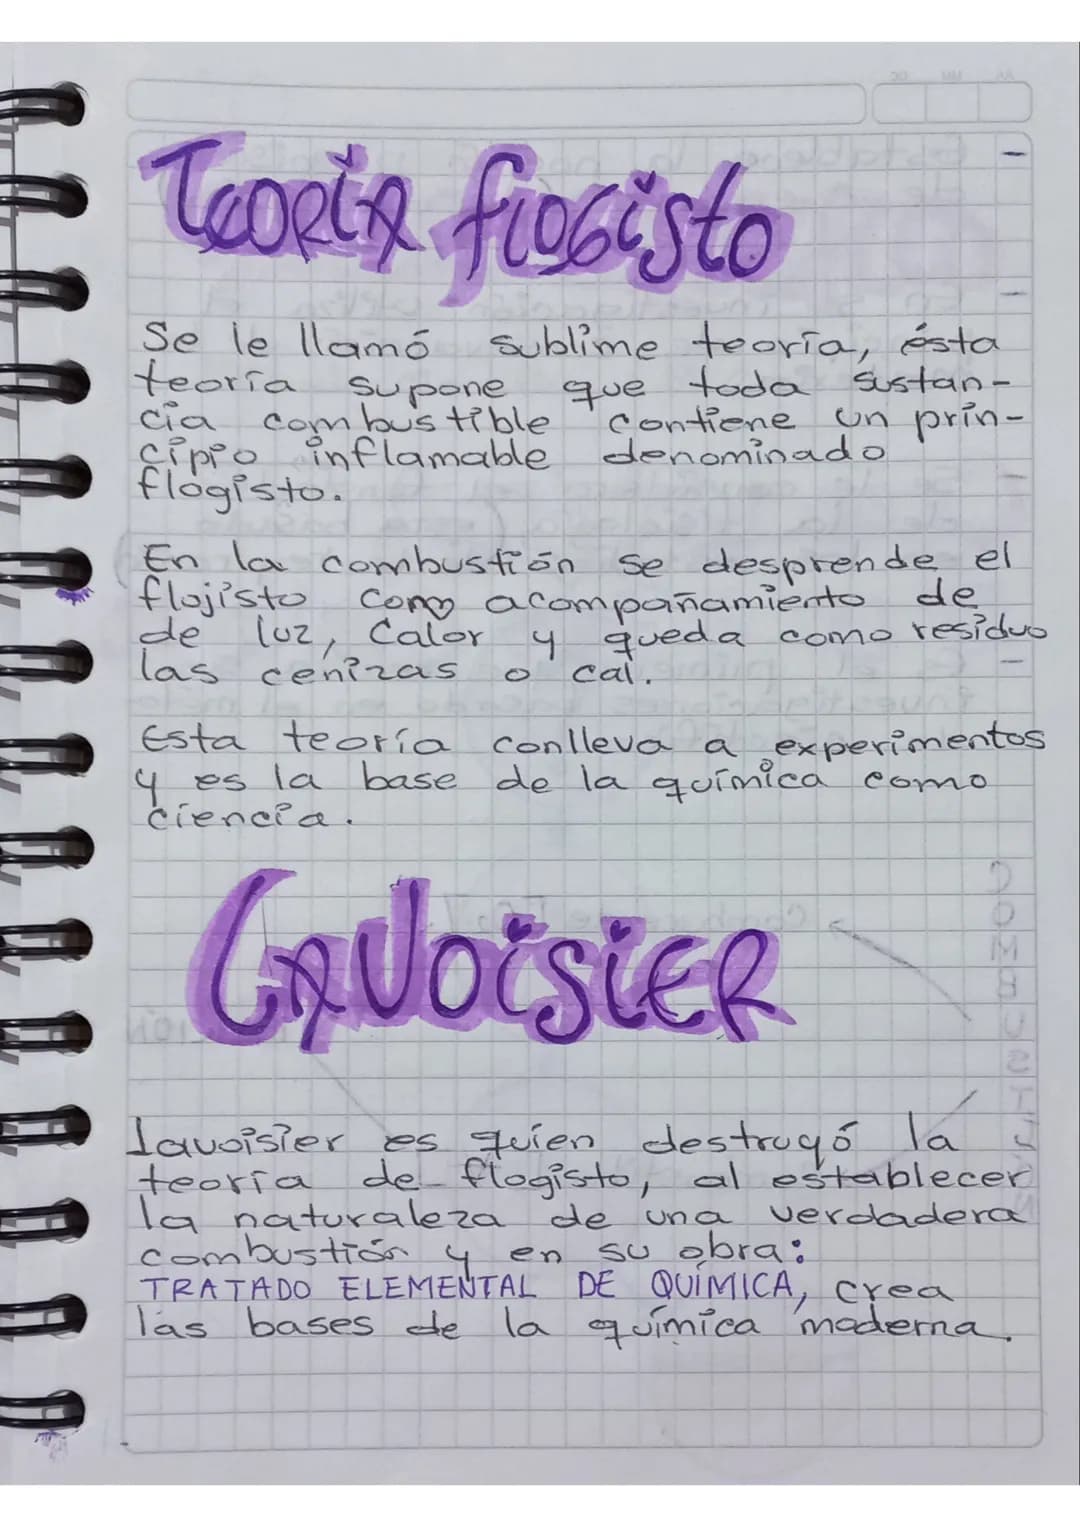 TEORÍA flogisto
Se le llamó sublime teoría, ésta
teoría supone que toda sustan-
cia combustible contiene un prin-
cipio inflamable denominado
flogisto.
En la combustión se desprende el
flojisto como acompañamiento de
de luz, Calor y queda como residuo
las cenizas o cal.
Esta teoría conlleva a experimentos
y es la base de la química como
ciencia.
LAVOISIER
Lavoisier es quien destruyó la
teoría de flogisto, al establecer
la naturaleza de una verdadera
combustión y en su obra:
TRATADO ELEMENTAL DE QUÍMICA, crea
las bases de la química moderna.